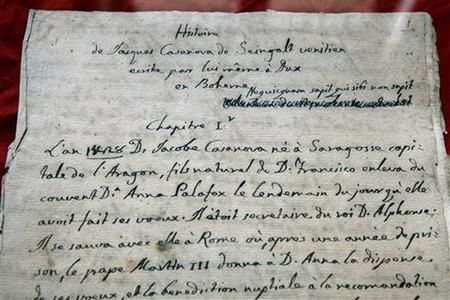 Histoire
de Jacques Casanova de Seingalt venitien
ecrite par lui même à Dux
en Boheme
Nequicquam sapit qui sibi non sapit
Chapitre I.r
L'an 1428 D. Jacobe Casanova né à Saragosse capi-
tale de l'Aragon, fils naturel de D. Francisco enleva du
couvent D. Anna Palafox le lendemain du jour qu'elle
avoit fait ses voeux. Il étoit secretaire du roi D. Alphonse.
Il se sauva avec elle à Rome où, après une année de pri-
son, le pape Martin III donna à D. Anna la dispense
de ses voeux, et la benediction nuptiale à la recomandation